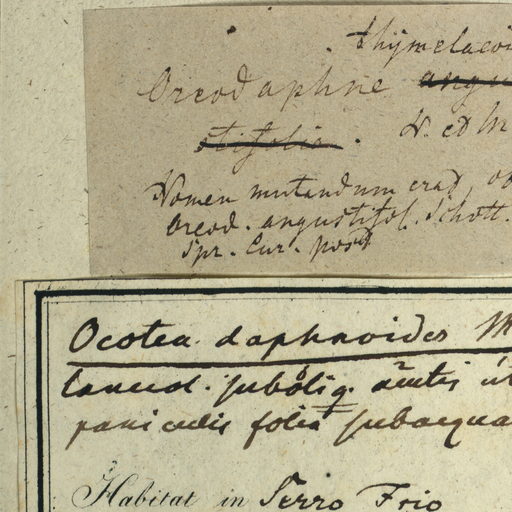 thymelaeoi
Oreodaphne angu
stifolia. N. et M
Nomen mutandum erat, ob
Oreod. angustifol. Schott.
Spr. Cur. post
Ocotea daphnoides M
lanceol. utis
paniculis folia subaequa
Habitat in Serro Frio